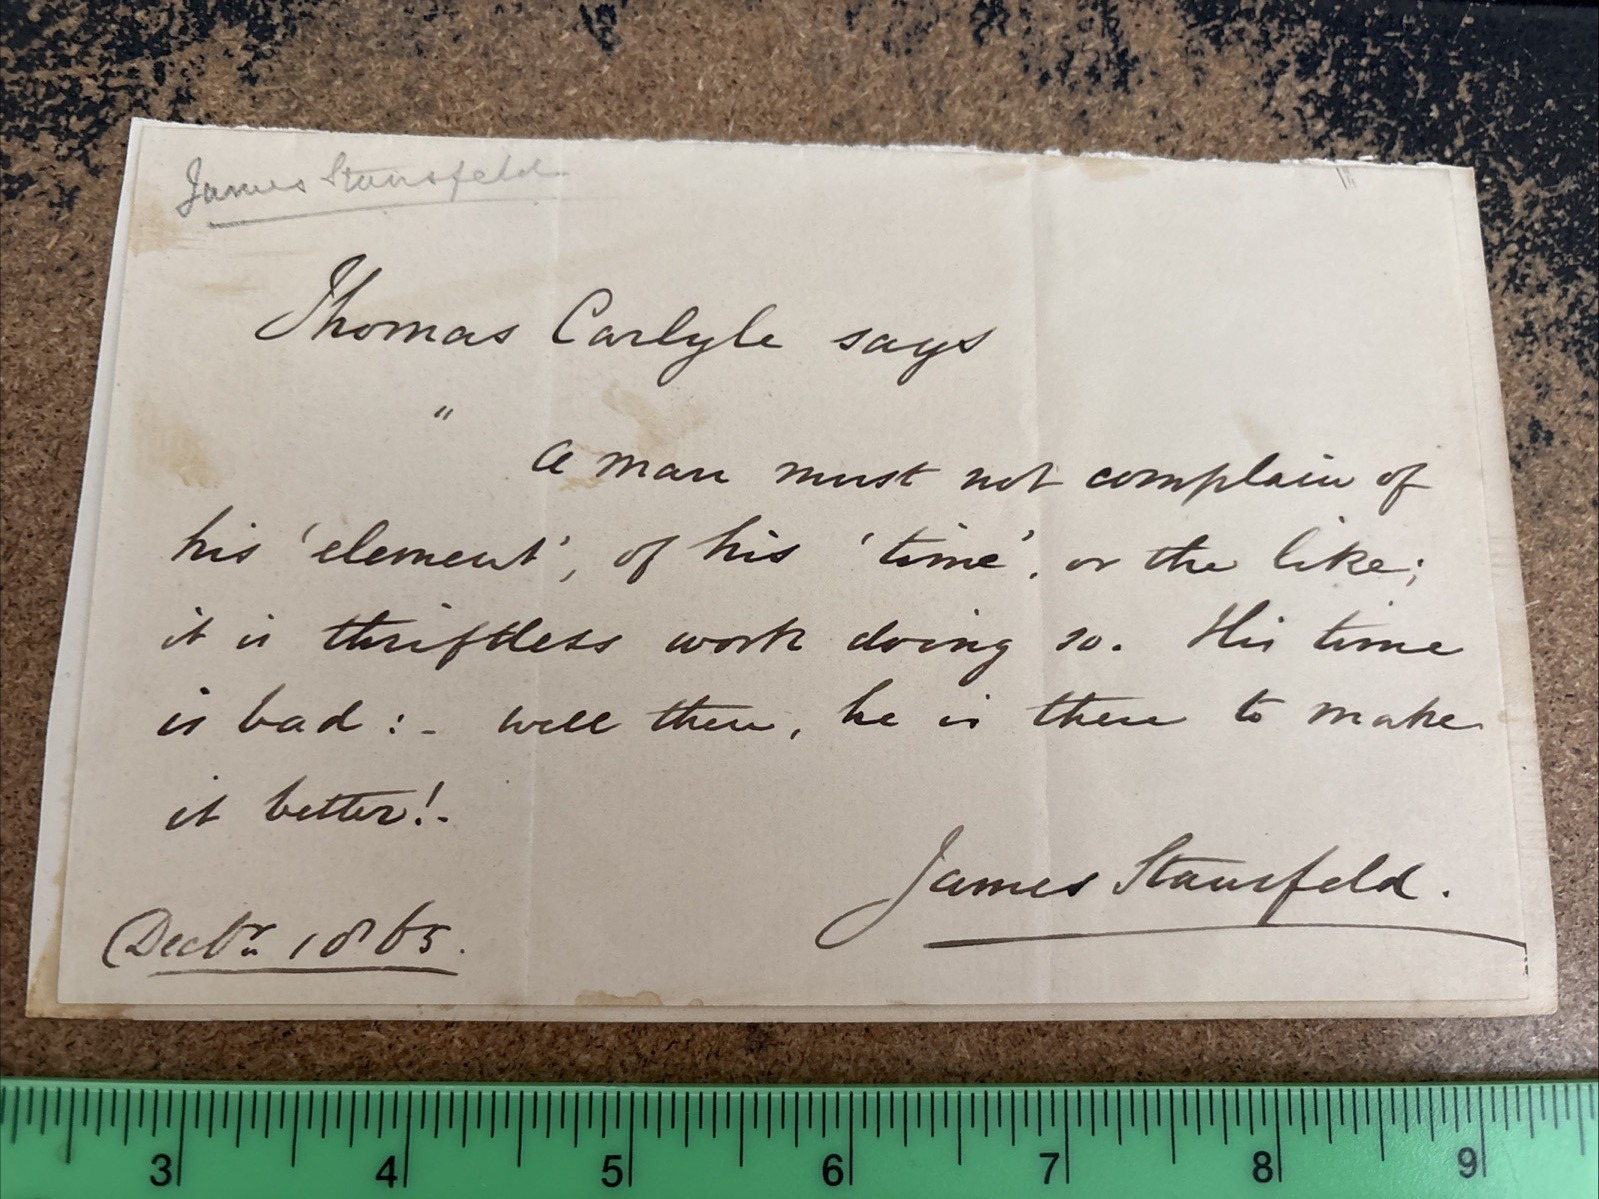 James Stansfeld
Thomas Carlyle says
"
A man must not complain of
his 'element', of his 'time', or the like;
it is thriftless work doing so. His time
is bad :- well then, he is there to make
it better!-
James Stansfeld.
Decbr. 1865.
3 4 5 6 7 8 9